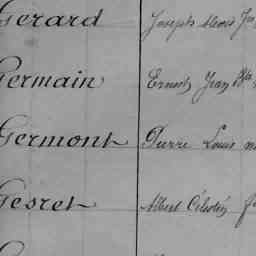 Gerard Joseph
Germain Ernest Jean Bte
Germont Pierre Louis
Gesret Albert Célestin